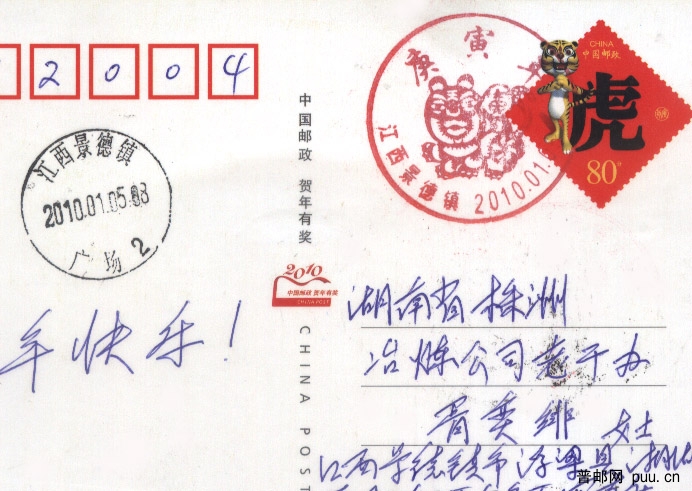 2 0 0 4
庚寅
江西景德镇 2010.01.
CHINA
中国邮政
虎
80
江西景德镇
2010.01.05.
广场 2
中国邮政 贺年有奖
2010
中国邮政 贺年有奖
CHINA POST
CHINA POST
年快乐!
湖南省株洲
冶炼公司老干办
女士
江西景德镇市浮梁县
普邮网 puu.cn